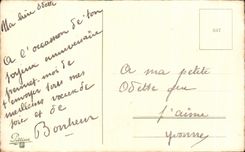 Ma chère Odette
A l'occasion de ton
joyeux anniversaire
permet-moi de
t'envoyer tous mes
meilleurs vœux de
joie et de
Bonheur
A ma petite
Odette que
j'aime
Yvonne